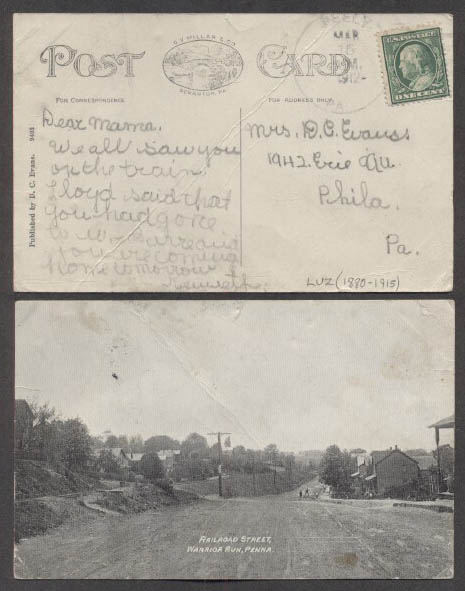 POST CARD
S. V. MILLAR & CO.
SCRANTON, PA.
FOR CORRESPONDENCE
FOR ADDRESS ONLY.
MAR
15
M.
1912
PA
ONE CENT
Published by D. C. Evans. 9403
Dear Mama.
We all saw you
on the train.
Floyd said that
you had gone
to W. Barre and
you're coming
home tomorrow
Kenneth.
Mrs. D.C. Evans
1942 Erie Av.
Phila.
Pa.
LUZ (1880-1915)
RAILROAD STREET,
WARRIOR RUN, PENNA.